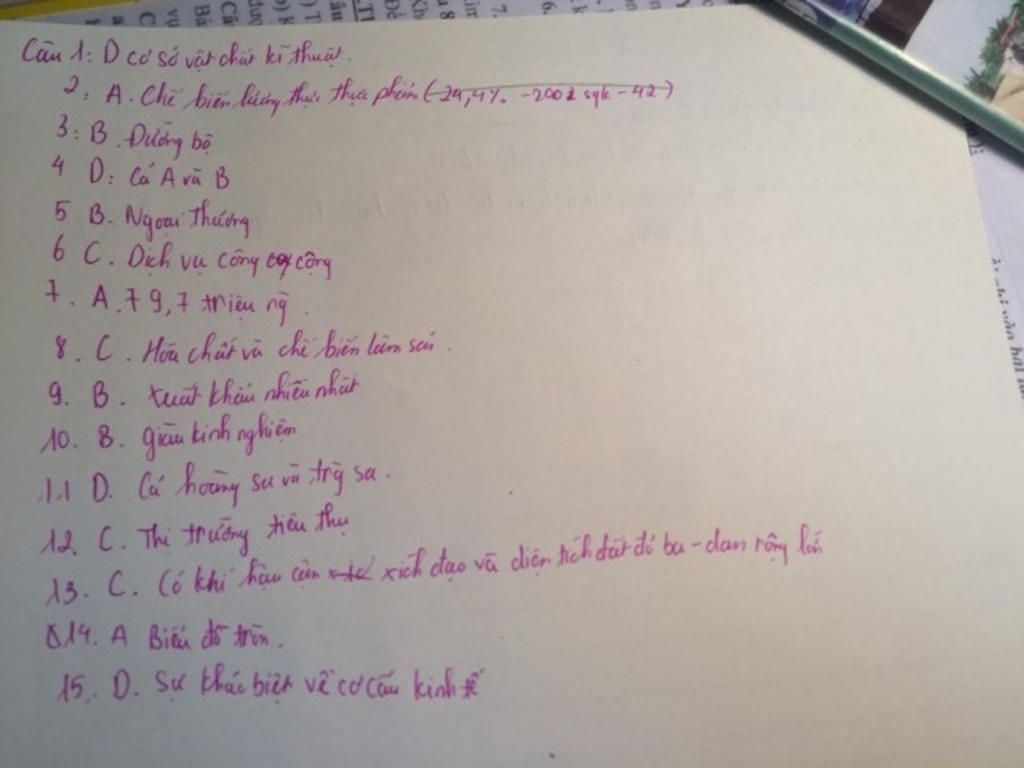 Câu 1: D cơ sở vật chất kĩ thuật.
2: A. Chế biến lương thực thực phẩm (24,4%. -2002 sgk - 42)
3: B. Đường bộ
4 D: Cả A và B
5 B. Ngoại thương
6 C. Dịch vụ công cộng
7. A. 79,7 triệu ng
8. C. Hóa chất và chế biến lâm sản.
9. B. Xuất khẩu nhiều nhất
10. B. giàu kinh nghiệm
11 D. Cả hoàng sa và trg sa.
12. C. Thị trường tiêu thụ
13. C. Có khí hậu cận xích đạo và diện tích đất đỏ ba-dan rộng lớn
14. A Biểu đồ tròn.
15. D. Sự khác biệt về cơ cấu kinh tế